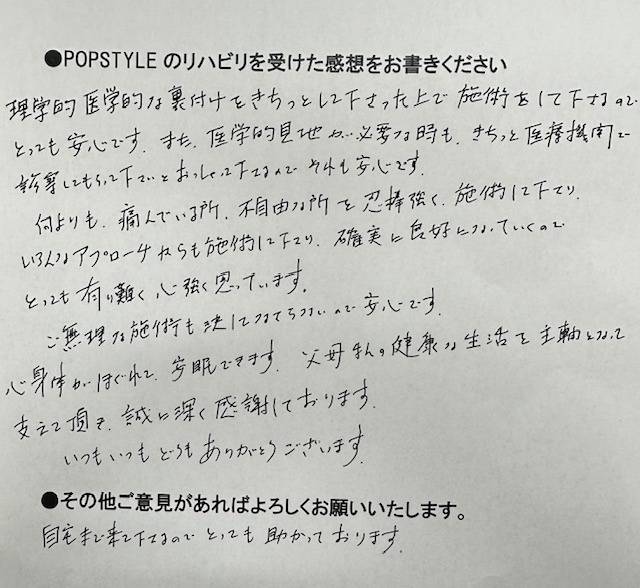 ●POPSTYLE のリハビリを受けた感想をお書きください
理学的 医学的な裏付けをきちっとして下さった上で 施術をして下さるので
とっても安心です。また、医学的見地が必要な時も、きちっと医療機関で
診察してもらって下さいとおっしゃって下さるので それも安心です。
何よりも、痛んでいる所、不自由な所を 忍耐強く、施術して下さり
いろんなアプローチからも施術して下さり、確実に良好になっていくので
とっても有り難く心強く思っています。
ご無理な施術も決してなさらないので安心です。
心身体がほぐれて、安眠できます。父母さんの健康な生活を主軸となって
支えて頂き、誠に深く感謝しております。
いつもいつもどうもありがとうございます。
●その他ご意見があればよろしくお願いいたします。
自宅まで来て下さるのでとっても助かっております。